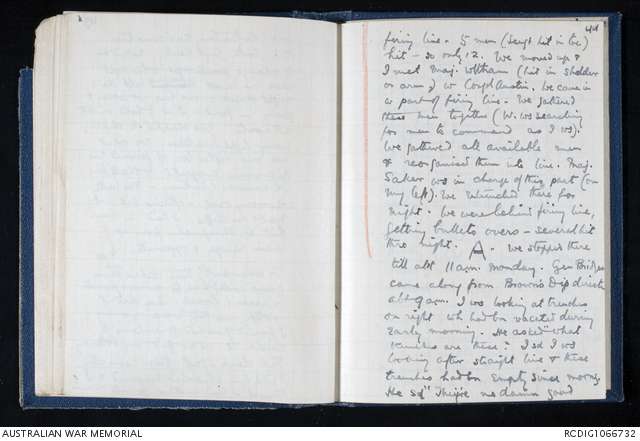 44
firing line. 5 men (Sergt hit in )
hit – so only 12. We moved up &
I met Maj. Wltham (hit in sholder
or arm) w Corpl Austin. We came in
as part of firing line. We gathered
these men together (W. ws searching
for men to command as I ws).
We gathered all available men
& reorganised them into line. Maj.
Saker ws in charge of this part (on
my left). We entrenched there for
night. We were behind firing line,
getting bullets overs – several hit
thro night. A. We stopped there
till abt 11 am. Monday. Gen Bridges
came along from Brown's Dip direct
abt 9 am. I ws looking at trenches
on right wh had bn vacated during
early morning. He asked "what
trenches are these? I sd I ws
looking after straight line & these
trenches had bn empty since morng.
He sd "They're no damn good
AUSTRALIAN WAR MEMORIAL
RCDIG1066732